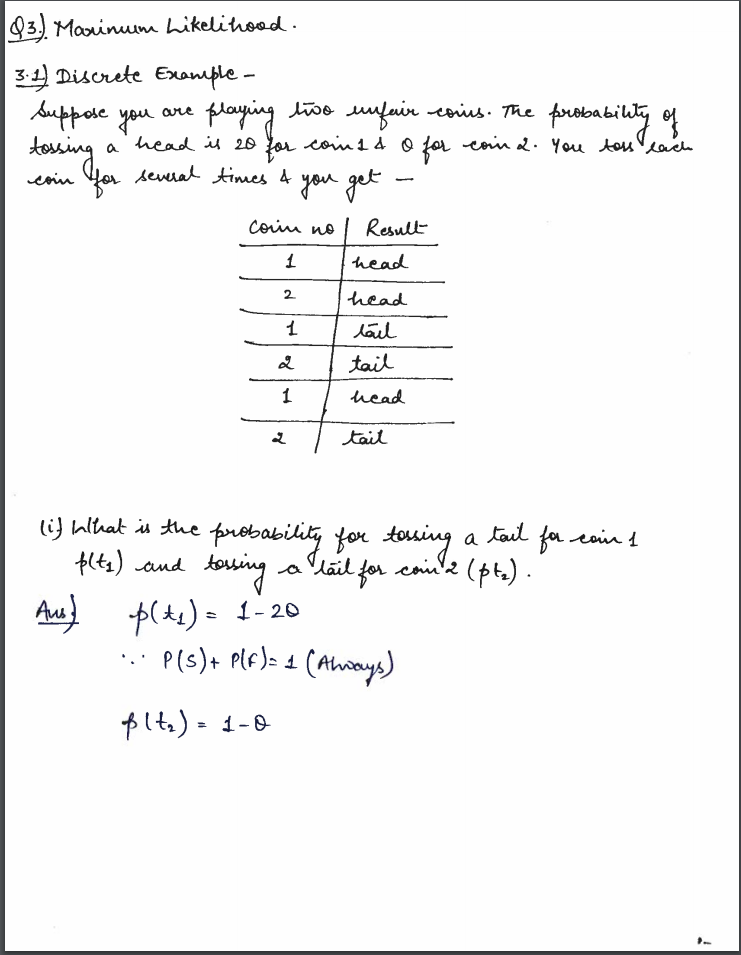 Q3.) Maximum Likelihood.
3.1) Discrete Example -
Suppose you are playing two unfair coins. The probability of
tossing a head is 2θ for coin 1 & θ for coin 2. You toss each
coin for several times & you get -
Coin no | Result
1 | head
2 | head
1 | tail
2 | tail
1 | head
2 | tail
(i) What is the probability for tossing a tail for coin 1
p(t₁) and tossing a tail for coin 2 (pt₂).
Ans) p(t₁) = 1-2θ
∵ P(S)+ P(F)= 1 (Always)
p(t₂) = 1-θ